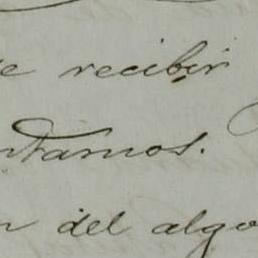 e recibir
ntamos.
n del algo